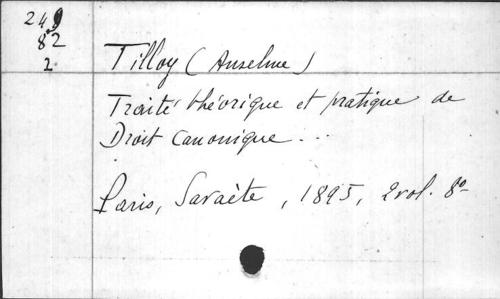 249
82
2
Tilloy (Anselme)
Traité théorique et pratique de
Droit canonique ...
Paris, Savaète, 1895, 2 vol. 8º